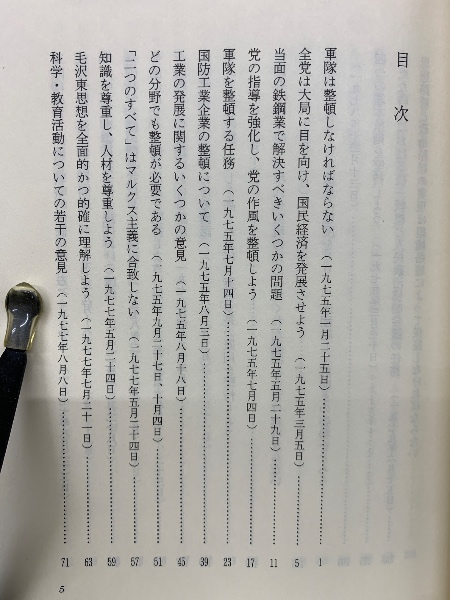 目次
軍隊は整頓しなければならない（一九七五年一月二十五日）…………1
全党は大局に目を向け、国民経済を発展させよう（一九七五年三月五日）…………5
当面の鉄鋼業で解決すべきいくつかの問題（一九七五年五月二十九日）…………11
党の指導を強化し、党の作風を整頓しよう（一九七五年七月四日）…………17
軍隊を整頓する任務（一九七五年七月十四日）…………23
国防工業企業の整頓について（一九七五年八月三日）…………39
工業の発展に関するいくつかの意見（一九七五年八月十八日）…………45
どの分野でも整頓が必要である（一九七五年九月二十七日、十月四日）…………51
「二つのすべて」はマルクス主義に合致しない（一九七七年五月二十四日）…………57
知識を尊重し、人材を尊重しよう（一九七七年五月二十四日）…………59
毛沢東思想を全面的かつ的確に理解しよう（一九七七年七月二十一日）…………63
科学・教育活動についての若干の意見（一九七七年八月八日）…………71
5